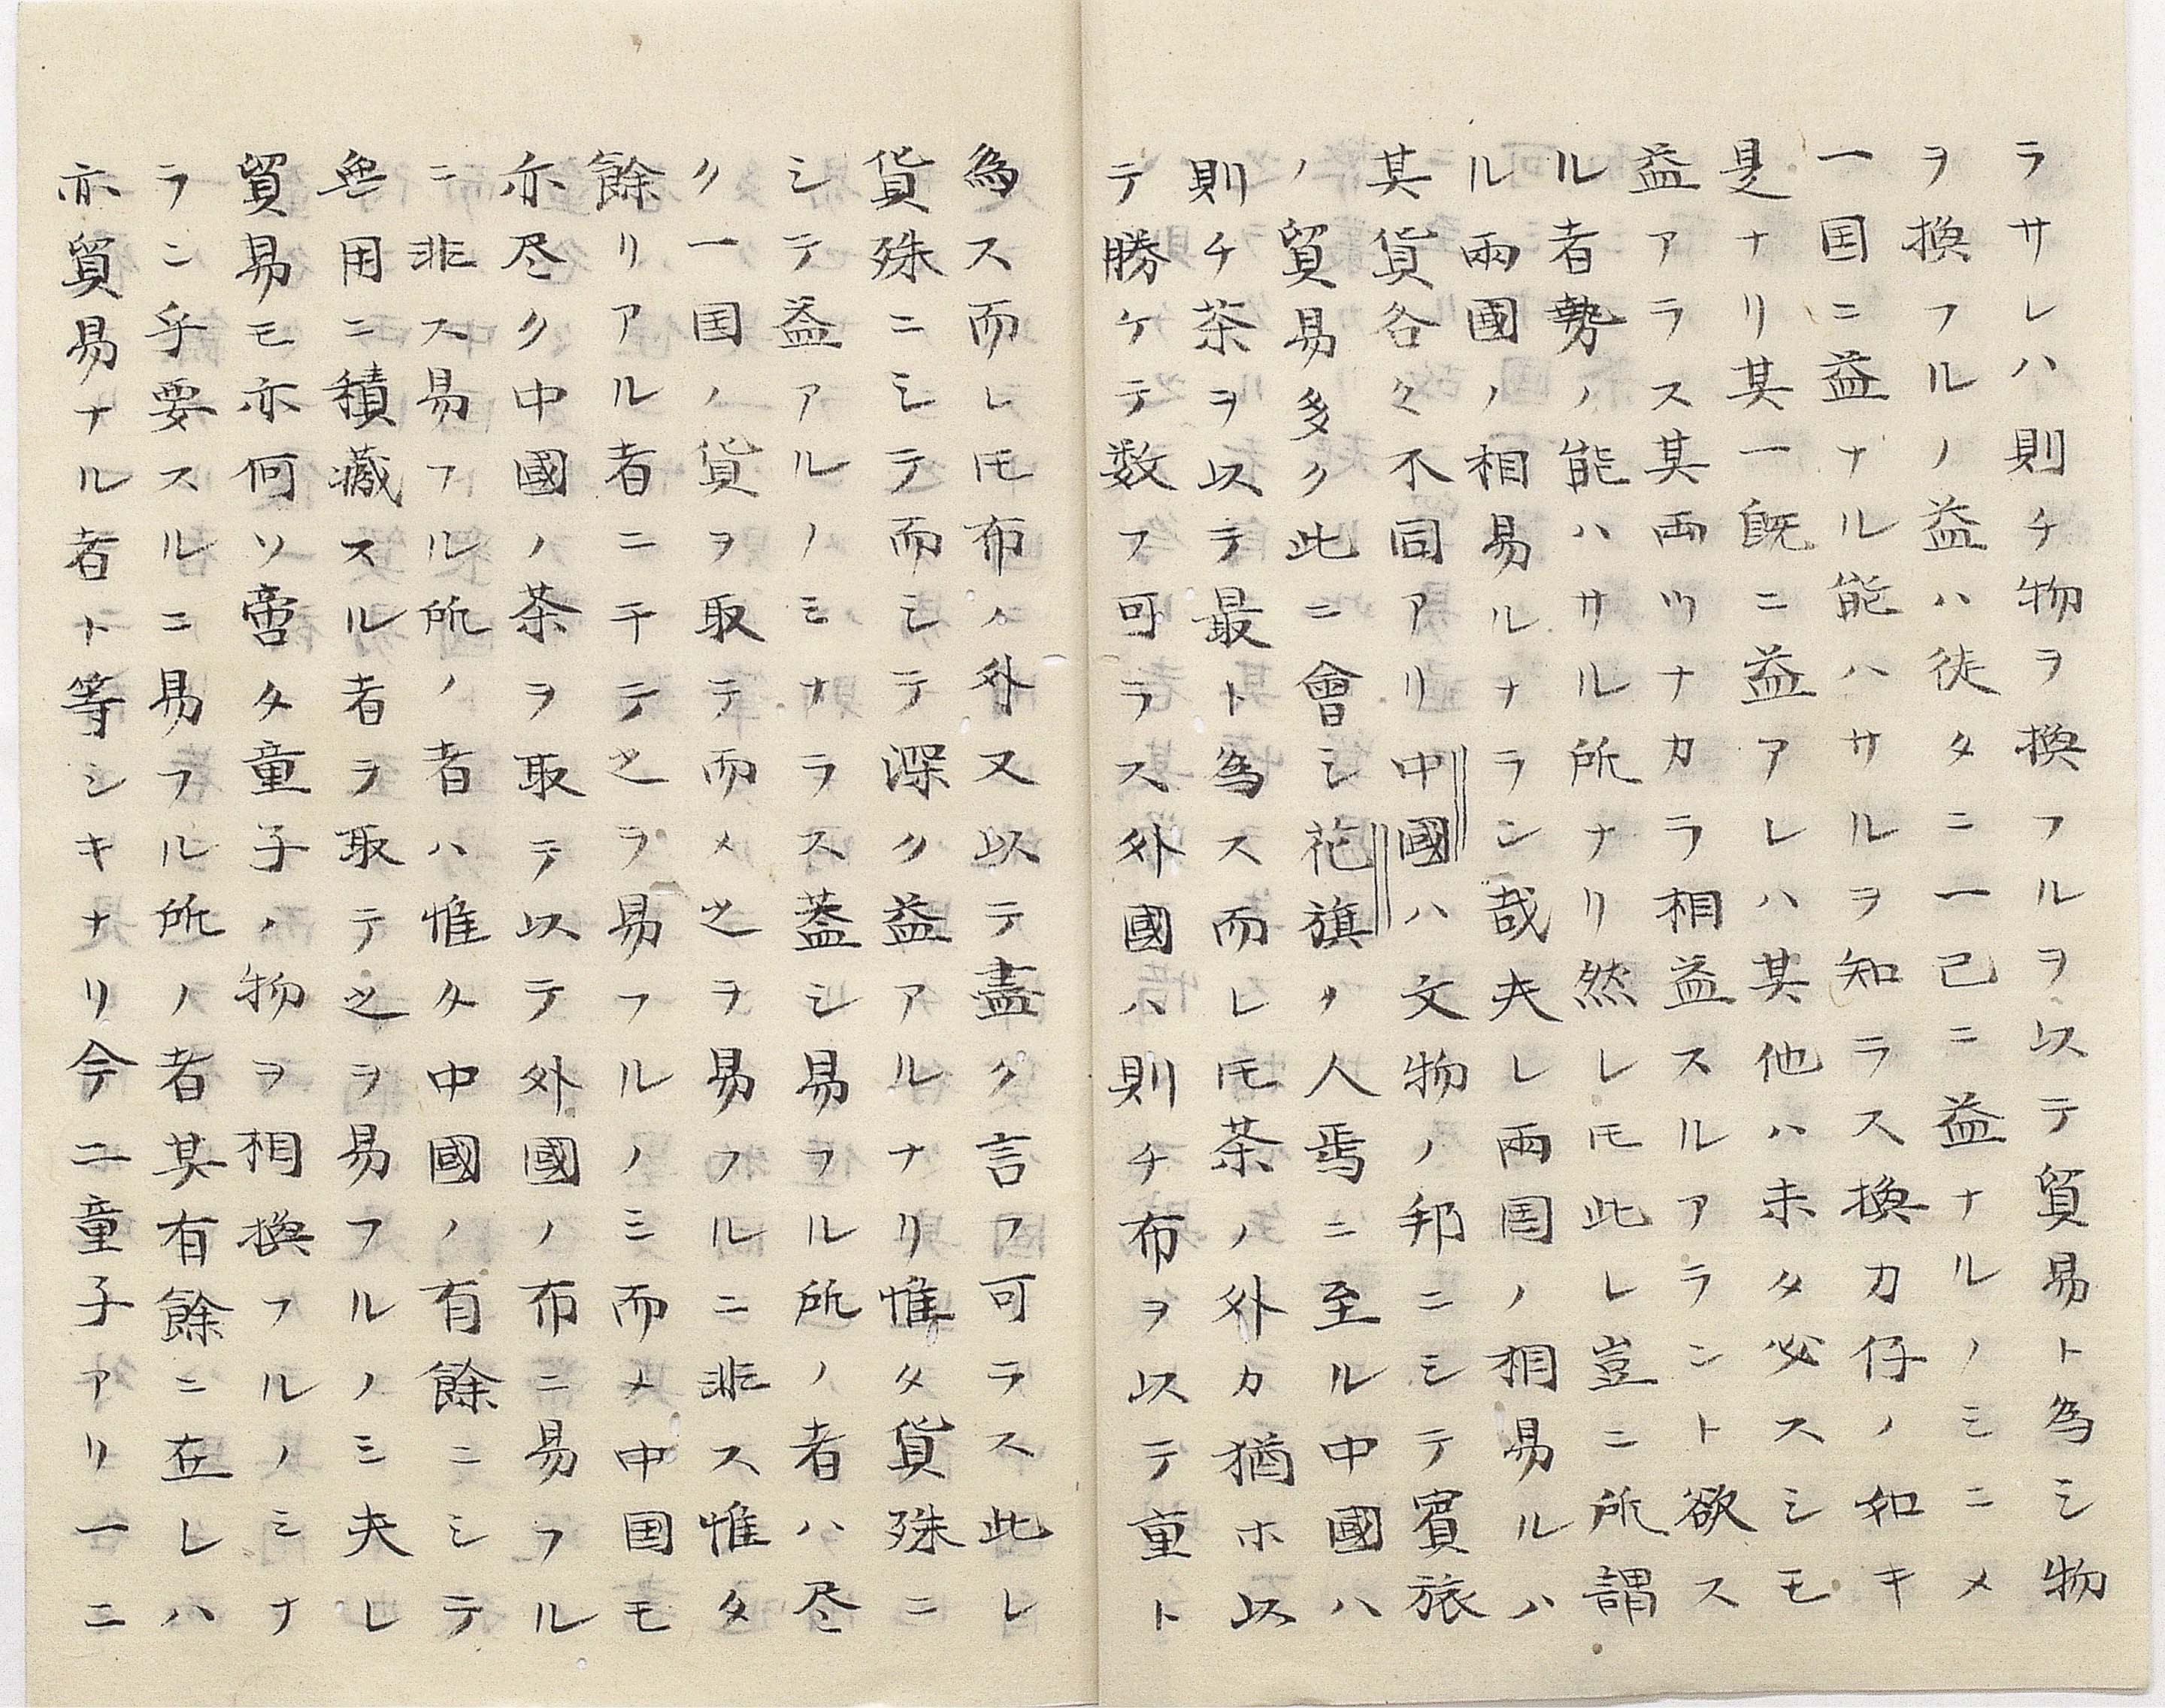 ラサレハ則チ物ヲ換フルヲ以テ貿易ト為シ物
ヲ換フルノ益ハ徒タニ一己ニ益ナルノミニメ
一国ニ益ナル能ハサルヲ知ラス換力仔ノ如キ
是ナリ其一既ニ益アレハ其他ハ未タ必スシモ
益アラス其両ツナカラ相益スルアラント欲ス
ル者勢ノ能ハサル所ナリ然レ𪜈此レ豈ニ所謂
ル兩國ノ相易ルナラン哉夫レ兩国ノ相易ルハ
其貨各々不同アリ中國ハ文物ノ邦ニシテ賓旅
ノ貿易多ク此ニ會シ祀旗ノ人焉ニ至ル中國ハ
則チ茶ヲ以テ最ト為ス而レ𪜈茶ノ外カ猶ホ以
テ勝ケテ数フ可ラス外國ハ則チ布ヲ以テ重ト
為ス而レ𪜈布ノ外又以テ盡ク言フ可ラス此レ
貨殊ニシテ而シテ深ク益アルナリ惟タ貨殊ニ
シテ益アルノミナラス蓋シ易フル所ノ者ハ尽
ク一国ノ貨ヲ取テ而メ之ヲ易フルニ非ス惟タ
餘リアル者ニ于テ之ヲ易フルノミ而メ中国モ
亦尽ク中國ノ茶ヲ取テ以テ外國ノ布ニ易フル
ニ非ス易フル所ノ者ハ惟タ中國ノ有餘ニシテ
無用ニ積藏スル者ヲ取テ之ヲ易フルノミ夫レ
貿易モ亦何ソ啻タ童子ノ物ヲ相換フルノミナ
ラン乎要スルニ易フル所ノ者其有餘ニ在レハ
亦貿易ナル者ト等シキナリ今二童子アリ一ニ